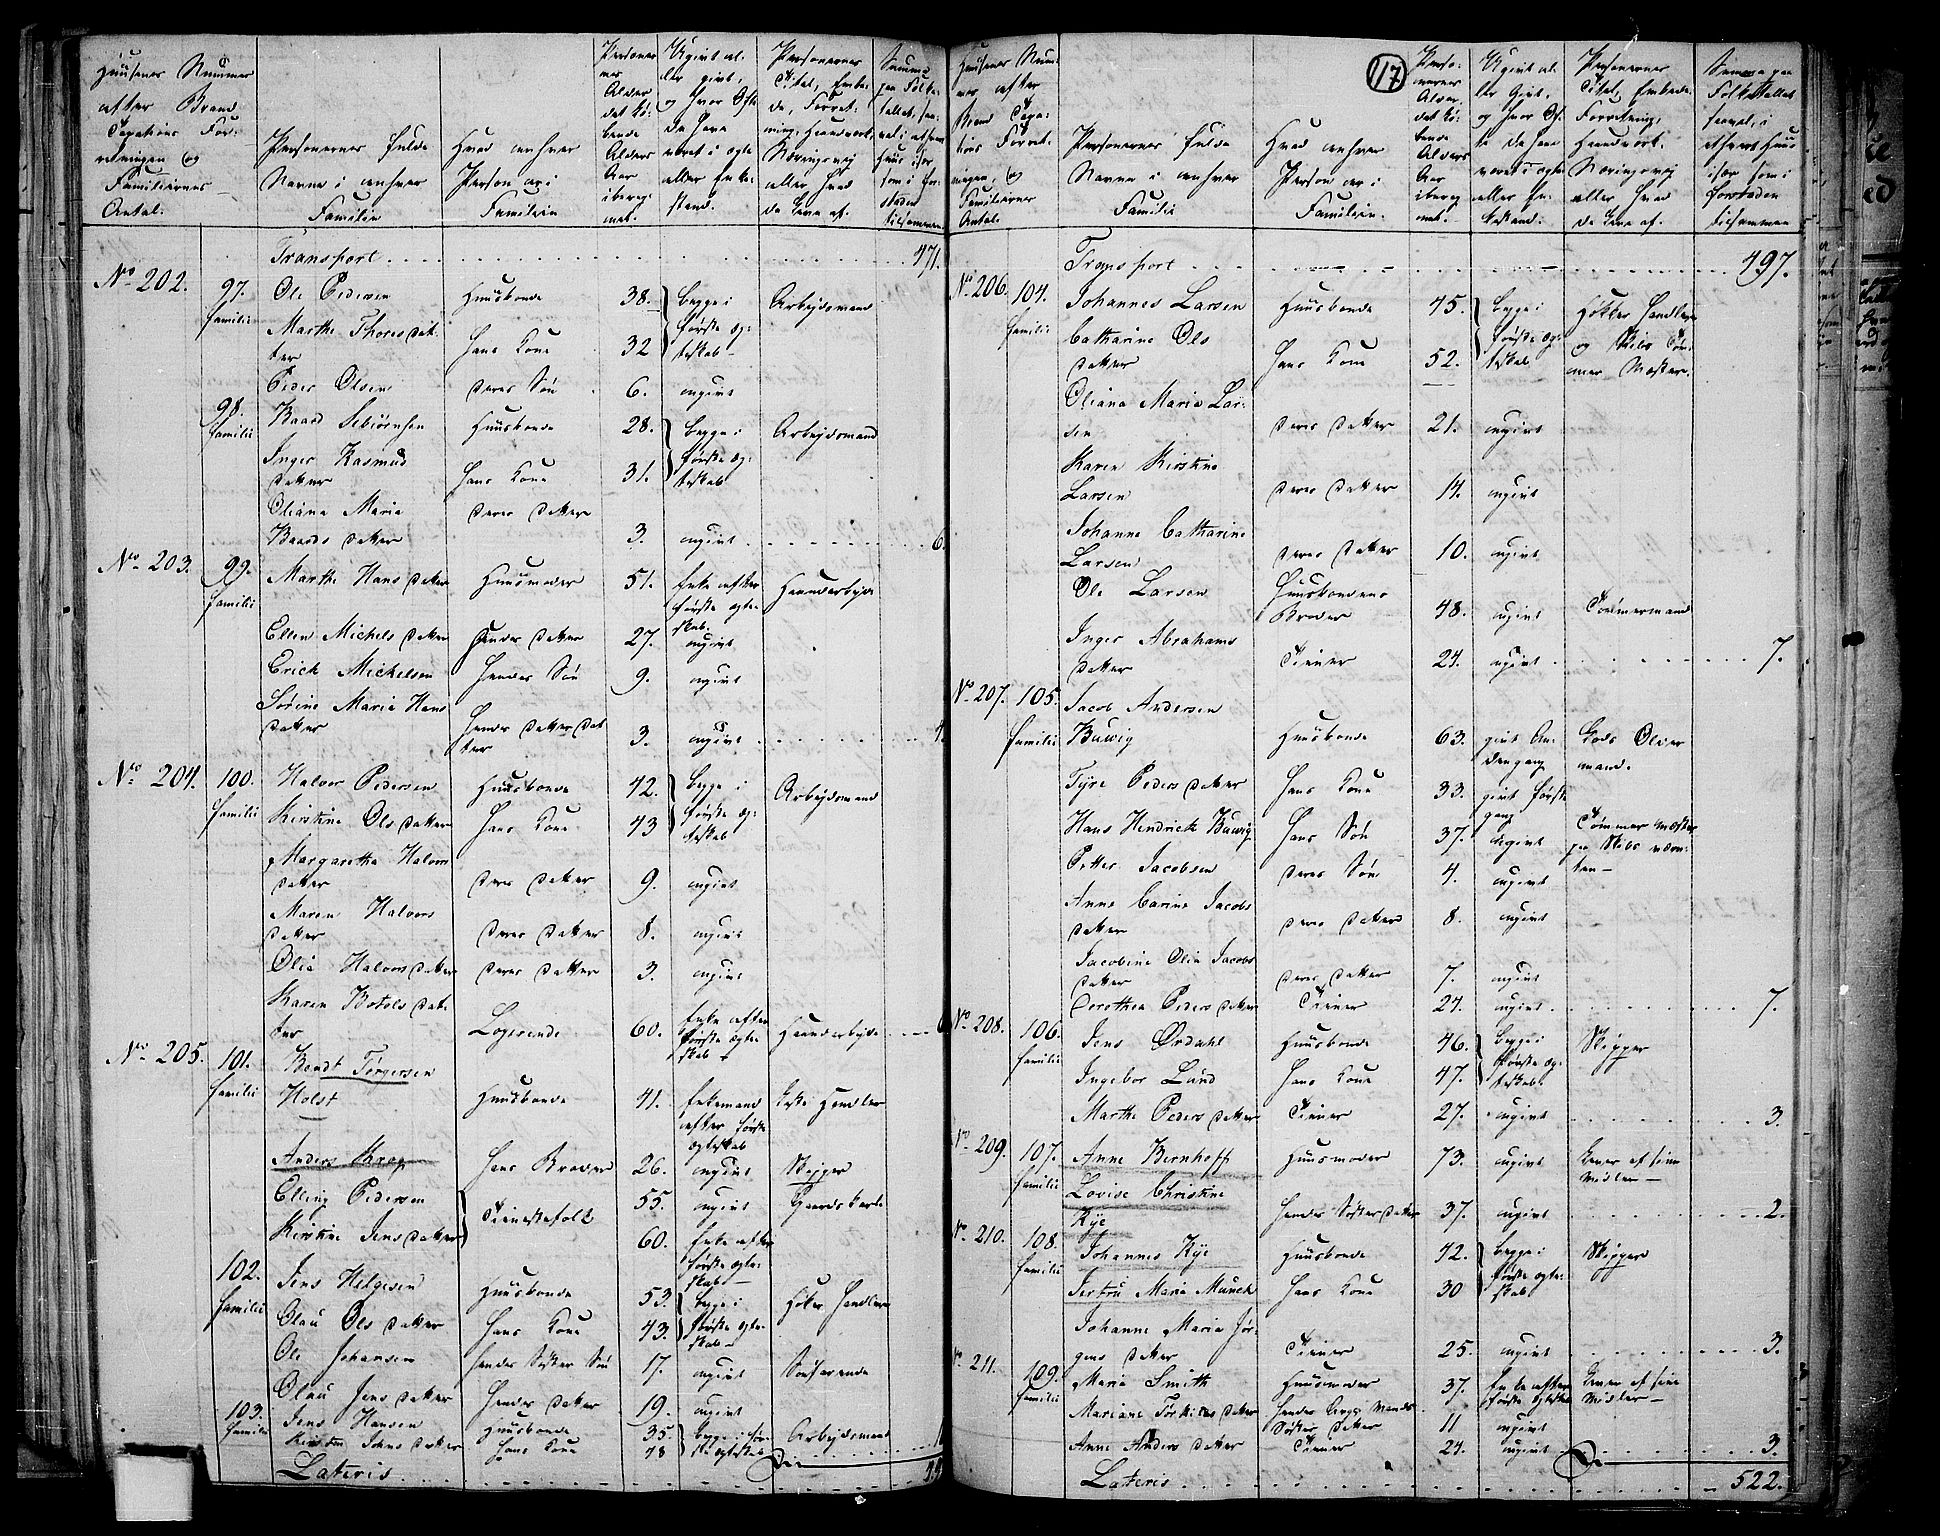 Huusenes Nummer
after Brand
Taxations For-
retningen og
Familiernes
Antal.
Personernes fulde
Navne i enhver
Familie
Hvad enhver
Person er i
Familien
Personer-
nes
Alder
det lö-
bende
Alders
Aar
ibereg-
net.
Ugivt el-
ler givt,
og hvor ofte
de have
været i ægte
eller Enke-
stand.
Personernes
Titel, Embe-
de, Forret-
ning, Haandverk,
Næringsvej
eller hvad
de leve af.
Transport 471.
No 202. 97. familie Ole Pedersen Huusbonde 38. begge i förste ægteskab Arbejdsmand
Marthe Thores Datter hans Kone 32
Peder Olsen deres Sön 6. ugivt
98. familie Baard Sebiörnsen Huusbonde 28. begge i förste ægteskab Arbejdsmand
Inger Rasmus datter hans Kone 31.
Oliana Maria Baards datter deres datter 3. ugivt 6.
No 203. 99. familie Marthe Hans datter Huusmoder 51. Enke efter förste ægteskab. Haandarbejde
Ellen Michels datter Hendes datter 27. ugivt
Erick Michelsen Hendes Sön 9. ugivt
Sörine Maria Hans datter Hendes datter datter 3. ugivt 4.
No 204. 100. familie Halvor Pedersen Huusbonde 42. begge i förste ægteskab Arbejdsmand
Kirstine Ols datter hans Kone 43
Margaretha Halvors datter deres datter 9. ugivt
Maren Halvors datter deres datter 8. ugivt
Olia Halvors datter deres datter 3. ugivt
Karen Botels datter Logerende 60. Enke efter förste ægteskab Haandarbejde
No 205. 101. familie Bendt Törgersen Holst Huusbonde 41. Enkemand efter förste ægteskab Handler
Anders Krog hans Broder 26. ugivt Skipper
Elling Pedersen Tienestefolk 55. ugivt Gaardskarl
Kirstine Jens datter 60. Enke efter förste ægteskab
102. familie Jens Helgesen Huusbonde 53. begge i förste ægteskab Höker Handler
Olau Ols datter hans Kone 43.
Ole Johansen hendes Söster Sön 17. ugivt Söefarende
Olau Jens datter Hendes datter 19. ugivt
103. familie Jens Hansen Huusbonde 35. begge i förste ægteskab Arbejdsmand
Kirsten Johns datter hans Kone 48
Lateris
117
Huusenes Num-
mer after
Brand Taxa-
tions Forret-
ningen, og
Familiernes
Antal.
Personernes fulde
Navne i enhver
Familie
Hvad enhver
Person er i
Familien.
Ugivt el-
ler Givt,
og hvor of-
te de have
været i ægte
eller En-
kestand.
Personernes
Titel, Embede
Forretning,
Haandverk.
Næringsvej
eller hvad
de leve af.
Summa paa
Folketallet
saavel i
ethvert Huus
især som i
forstaden
tilsammen
Transport 497.
No 206. 104. familie Johannes Larsen Huusbonde 45. begge i förste ægteskab Höker Handler og Skibs Tömmer Mester.
Catharine Ols datter hans Kone 52.
Oliana Maria Larsen deres datter 21. ugivt
Karen Kirstine Larsen deres datter 14. ugivt
Johanne Catharine Larsen deres datter 10. ugivt
Ole Larsen Huusbondens Broder 48. ugivt Tömmermand
Inger Abrahams datter Tiener 24. ugivt 7.
No 207. 105. familie Jacob Andersen Buwig Huusbonde 63. givt Anden gang
Tyre Peders datter hans Kone 33. givt förste gang
Hans Hendrick Buwig hans Sön 37. ugivt Tömmer Mester
Petter Jacobsen deres Sön 4. ugivt
Anne Carine Jacobs datter deres datter 8. ugivt
Jacobine Olia Jacobs datter deres datter 7. ugivt
Dorothea Peders datter Tiener 24. ugivt 7.
No 208. 106. familie Jens Ördahl Huusbonde 46. begge i förste ægteskab Skipper
Ingebor Lund hans Kone 47.
Marthe Peders datter Tiener 27. ugivt 3.
No 209. 107. familie Anne Bernhoff Huusmoder 73. ugivt Lever af sine Midler
Lovise Christine Rye Hendes Söster datter 37. ugivt 2.
No 210. 108. familie Johannes Rye Huusbonde 42. begge i förste ægteskab Skipper
Jertru Maria Munch hans Kone 30
Johanne Maria Jörgens datter Tiener 25. ugivt 3.
No 211. 109. familie Maria Smith Huusmoder 37. Enke efter förste ægteskab Lever af sine Midler
Mariane Törkilds datter hendes Mands Söster datter 11 ugivt
Anne Anders datter Tiener 24. ugivt 3.
Lateris 522.